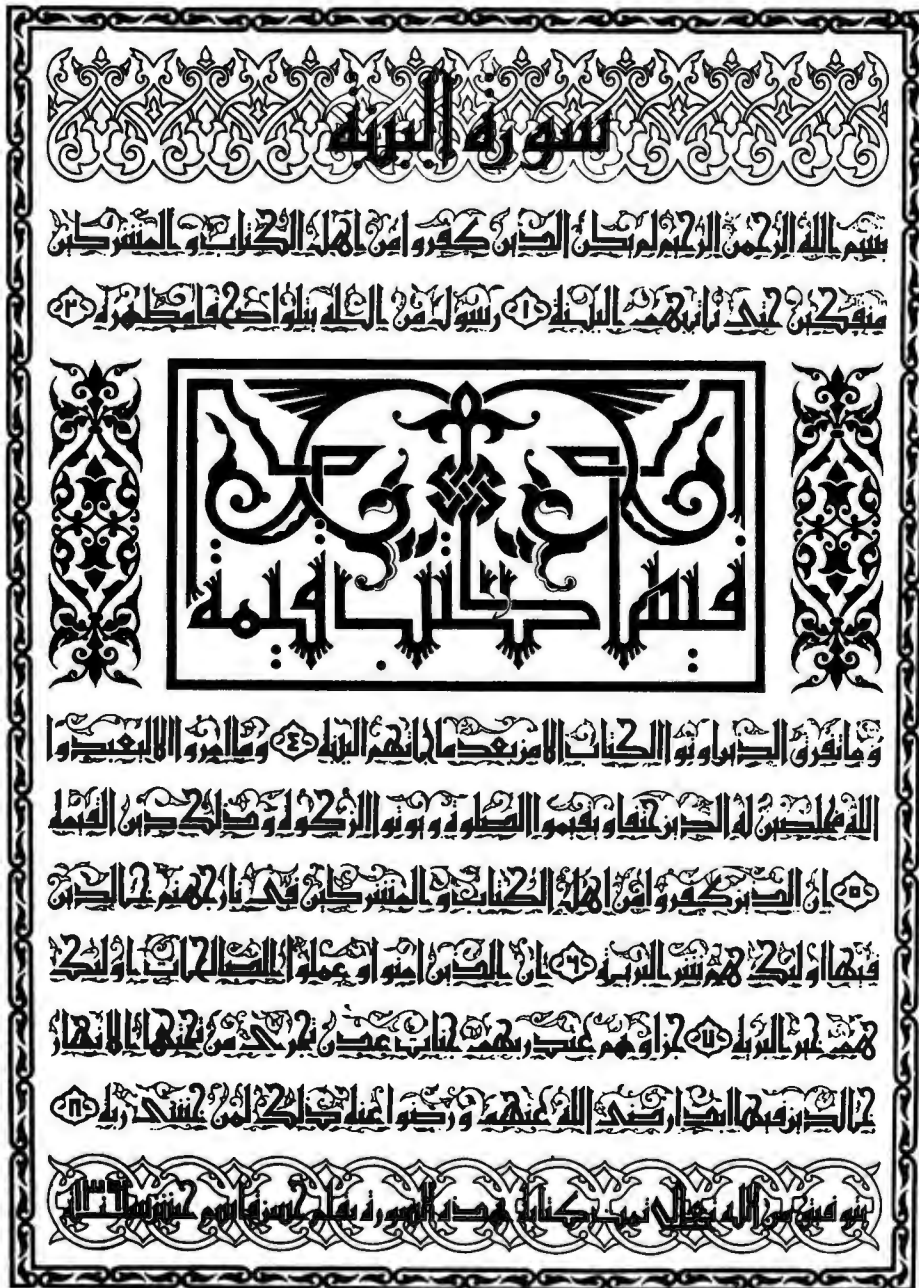 سورة البينة
بسم الله الرحمن الرحيم لم يكن الذين كفروا من اهل الكتاب و المشركين
منفكين حتى تاتيهم البينة ١ رسول من الله يتلوا صحفا مطهرة ٢
فيها كتب قيمة
و ما تفرق الذين اوتوا الكتاب الا من بعد ما جائتهم البينة ٤ و ما امروا الا ليعبدوا
الله مخلصين له الدين حنفاء و يقيموا الصلوة و يوتوا الزكوة و ذلك دين القيمة
٥ ان الذين كفروا من اهل الكتاب و المشركين في نار جهنم خالدين
فيها اولئك هم شر البرية ٦ ان الذين امنوا و عملوا الصالحات اولئك
هم خير البرية ٧ جزاوهم عند ربهم جنات عدن تجري من تحتها الانهار
خالدين فيها ابدا رضي الله عنهم و رضوا عنه ذلك لمن خشي ربه ٨
بتوفيق من الله تعالى تمت كتابة هذه السورة بقلم حسن قاسم حبش